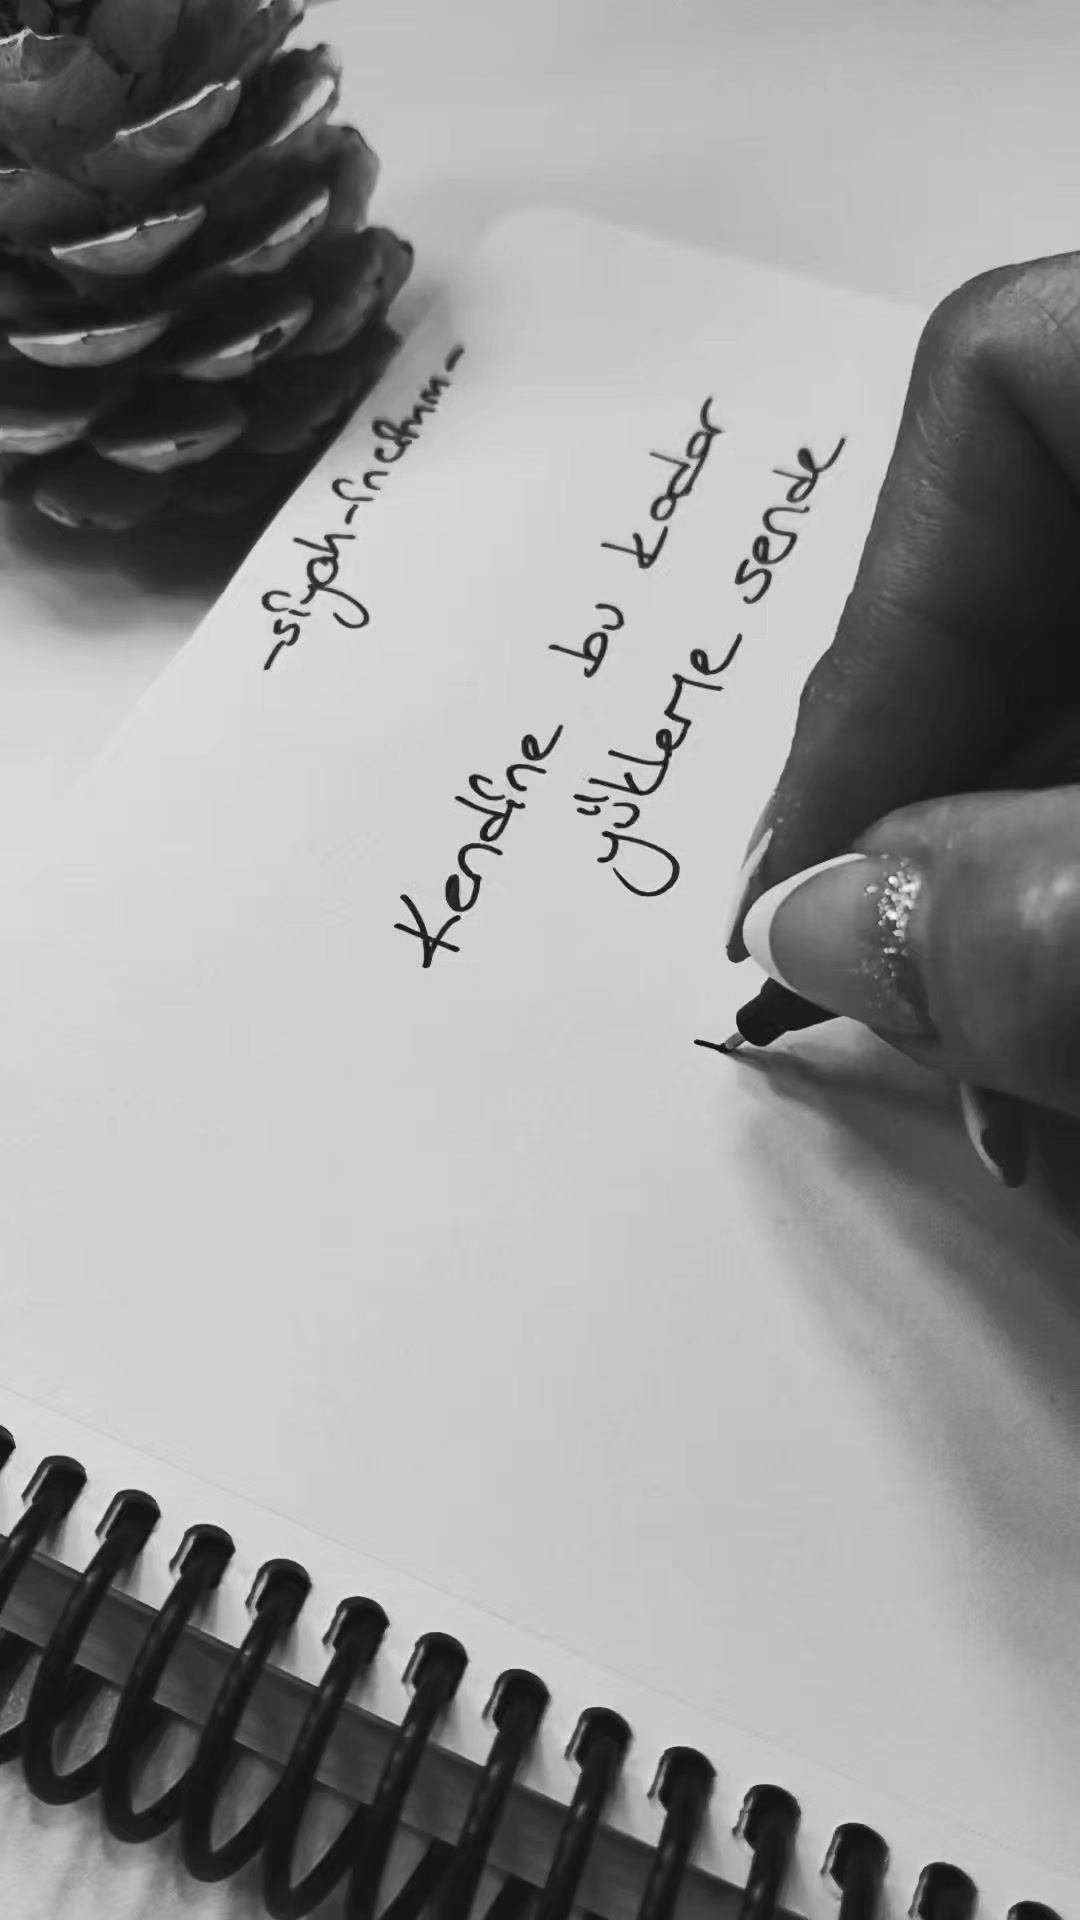 -siyah-incimm-
Kendine bu kadar
yüklenme sende